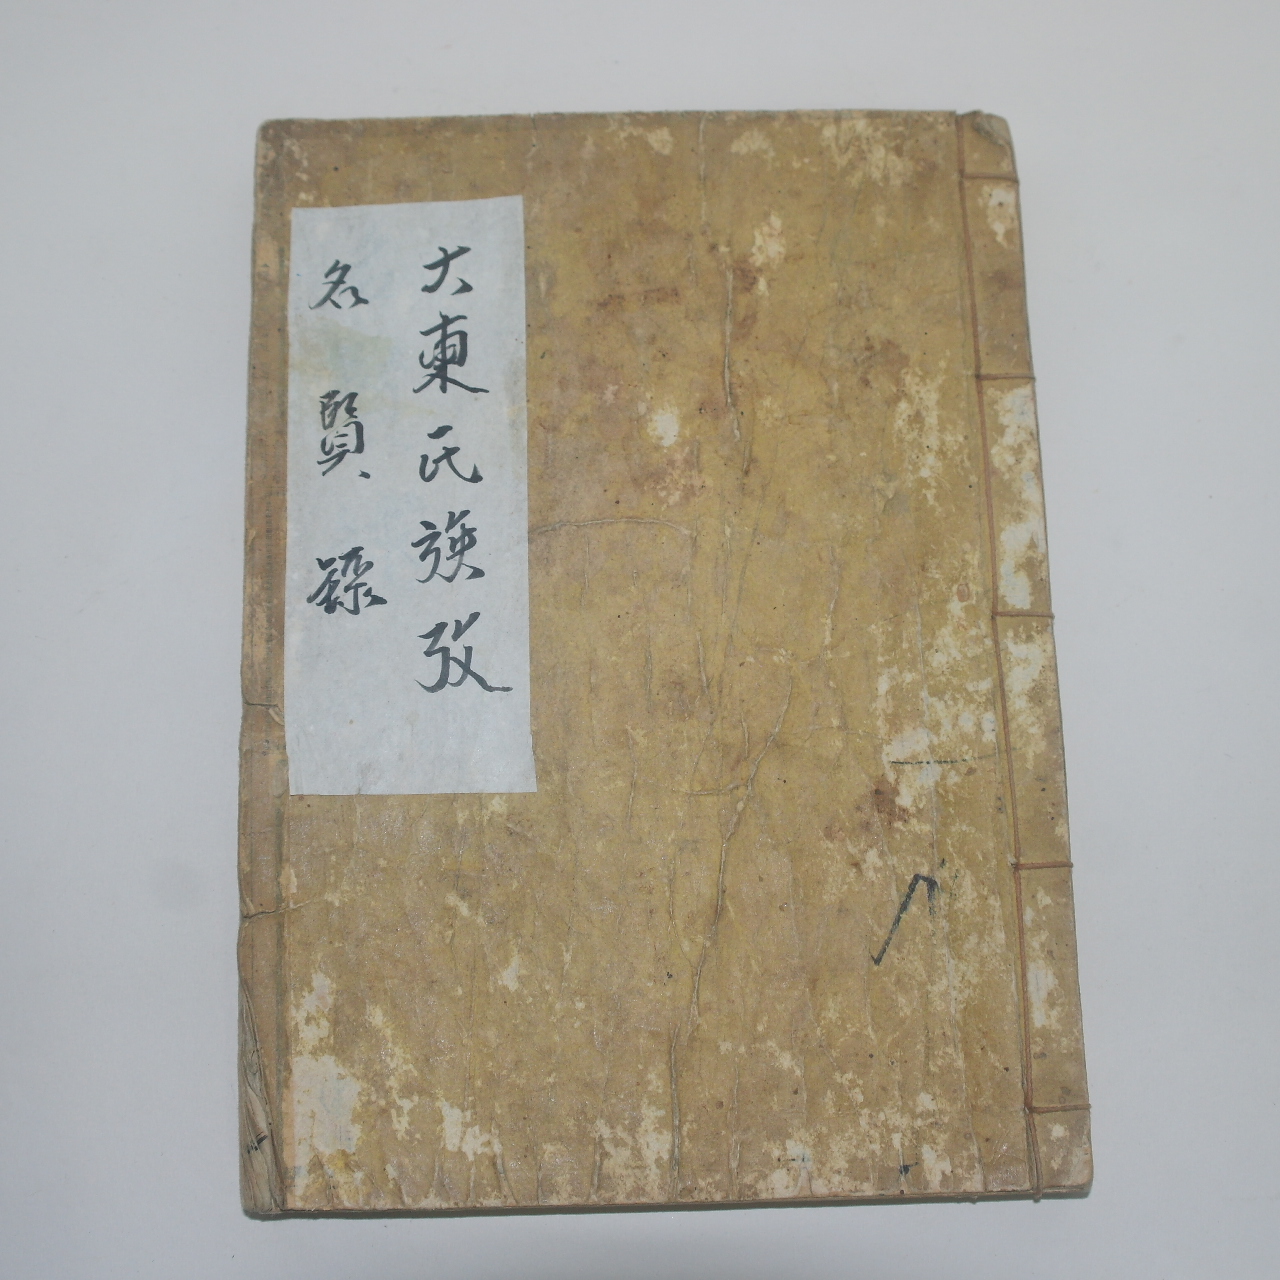 大東氏族攷
名賢錄